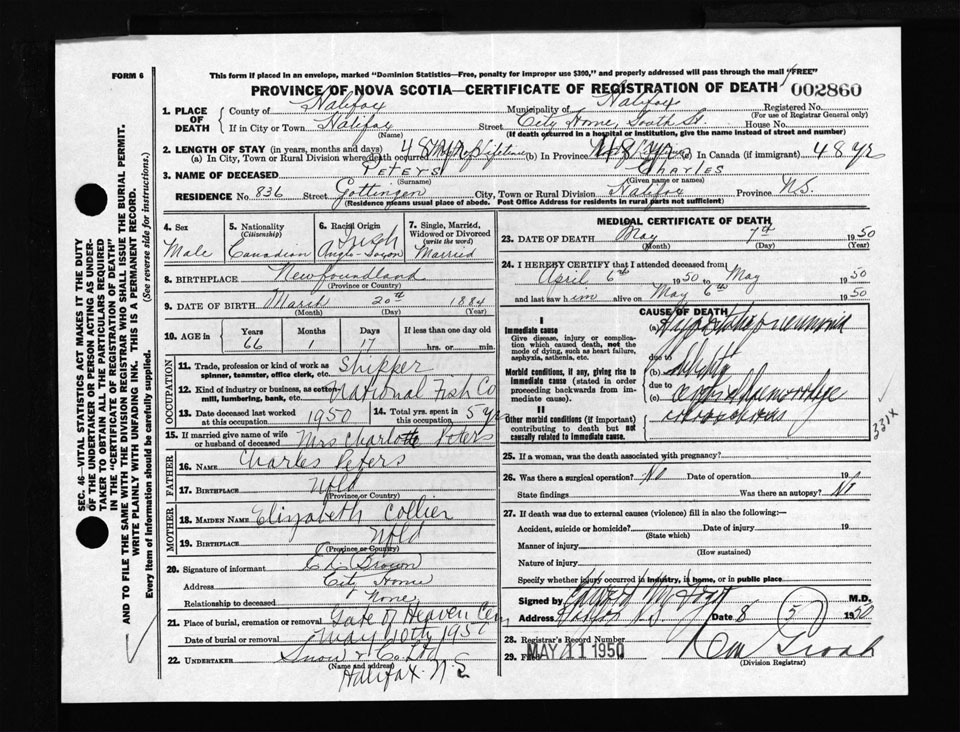 FORM 6
This form if placed in an envelope, marked "Dominion Statistics—Free, penalty for improper use $300," and properly addressed will pass through the mail "FREE"
PROVINCE OF NOVA SCOTIA—CERTIFICATE OF REGISTRATION OF DEATH 002860
1. PLACE OF DEATH
County of Halifax Municipality of Halifax Registered No.
(For use of Registrar General only)
If in City or Town Halifax Street City Home, South St. House No.
(Name) (If death occurred in a hospital or institution, give the name instead of street and number)
2. LENGTH OF STAY (in years, months and days)
(a) In City, Town or Rural Division where death occurred 48 yr (b) In Province 48 yrs In Canada (if immigrant) 48 yr
3. NAME OF DECEASED Peters Charles
(Surname) (Given name or names)
RESIDENCE No. 836 Street Gottingen City, Town or Rural Division Halifax Province N.S.
(Residence means usual place of abode. Post Office Address for residents in rural parts not sufficient)
4. Sex Male
5. Nationality (Citizenship) Canadian
6. Racial Origin Irish Anglo-Saxon
7. Single, Married, Widowed or Divorced (write the word) Married
8. BIRTHPLACE Newfoundland
(Province or Country)
9. DATE OF BIRTH March 20th 1884
(Month) (Day) (Year)
10. AGE in Years Months Days If less than one day old
66 1 17 hrs. or min.
OCCUPATION
11. Trade, profession or kind of work as spinner, teamster, office clerk, etc. Shipper
12. Kind of industry or business, as cotton mill, lumbering, bank, etc. National Fish Co
13. Date deceased last worked at this occupation 1950
14. Total yrs. spent in this occupation 5 yr
15. If married give name of wife or husband of deceased Mrs Charlotte Peters
FATHER
16. NAME Charles Peters
17. BIRTHPLACE Nfld
(Province or Country)
MOTHER
18. MAIDEN NAME Elizabeth Collier
19. BIRTHPLACE Nfld
(Province or Country)
20. Signature of informant Ed. Brown
Address City Home
Relationship to deceased None
21. Place of burial, cremation or removal Gate of Heaven Cem
Date of burial or removal May 10th 1950
22. UNDERTAKER Snow & Co. Ltd
(Name and address)
Halifax N.S.
MEDICAL CERTIFICATE OF DEATH
23. DATE OF DEATH May 7th 1950
(Month) (Day) (Year)
24. I HEREBY CERTIFY that I attended deceased from
April 6th 1950 to May 1950
and last saw him alive on May 6th 1950
CAUSE OF DEATH
I
Immediate cause
Give disease, injury or complication which caused death, not the mode of dying, such as heart failure, asphyxia, asthenia, etc.
(a) pneumonia
due to
Morbid conditions, if any, giving rise to immediate cause (stated in order proceeding backwards from immediate cause).
(b)
due to
(c)
II
Other morbid conditions (if important) contributing to death but not causally related to immediate cause.
331X
25. If a woman, was the death associated with pregnancy?
26. Was there a surgical operation? No Date of operation 19
State findings Was there an autopsy? No
27. If death was due to external causes (violence) fill in also the following:—
Accident, suicide or homicide? Date of injury 19
(State which)
Manner of injury
(How sustained)
Nature of injury
Specify whether injury occurred in industry, in home, or in public place
Signed by M.D.
Address Halifax N.S. Date 8 5 1950
28. Registrar's Record Number
29. Filed MAY 11 1950
(Division Registrar)
SEC. 46—VITAL STATISTICS ACT MAKES IT THE DUTY OF THE UNDERTAKER OR PERSON ACTING AS UNDERTAKER TO OBTAIN ALL THE PARTICULARS REQUIRED IN THE "CERTIFICATE OF REGISTRATION OF DEATH" AND TO FILE THE SAME WITH THE DIVISION REGISTRAR WHO SHALL ISSUE THE BURIAL PERMIT.
WRITE PLAINLY WITH UNFADING INK. THIS IS A PERMANENT RECORD.
Every item of information should be carefully supplied. (See reverse side for instructions.)